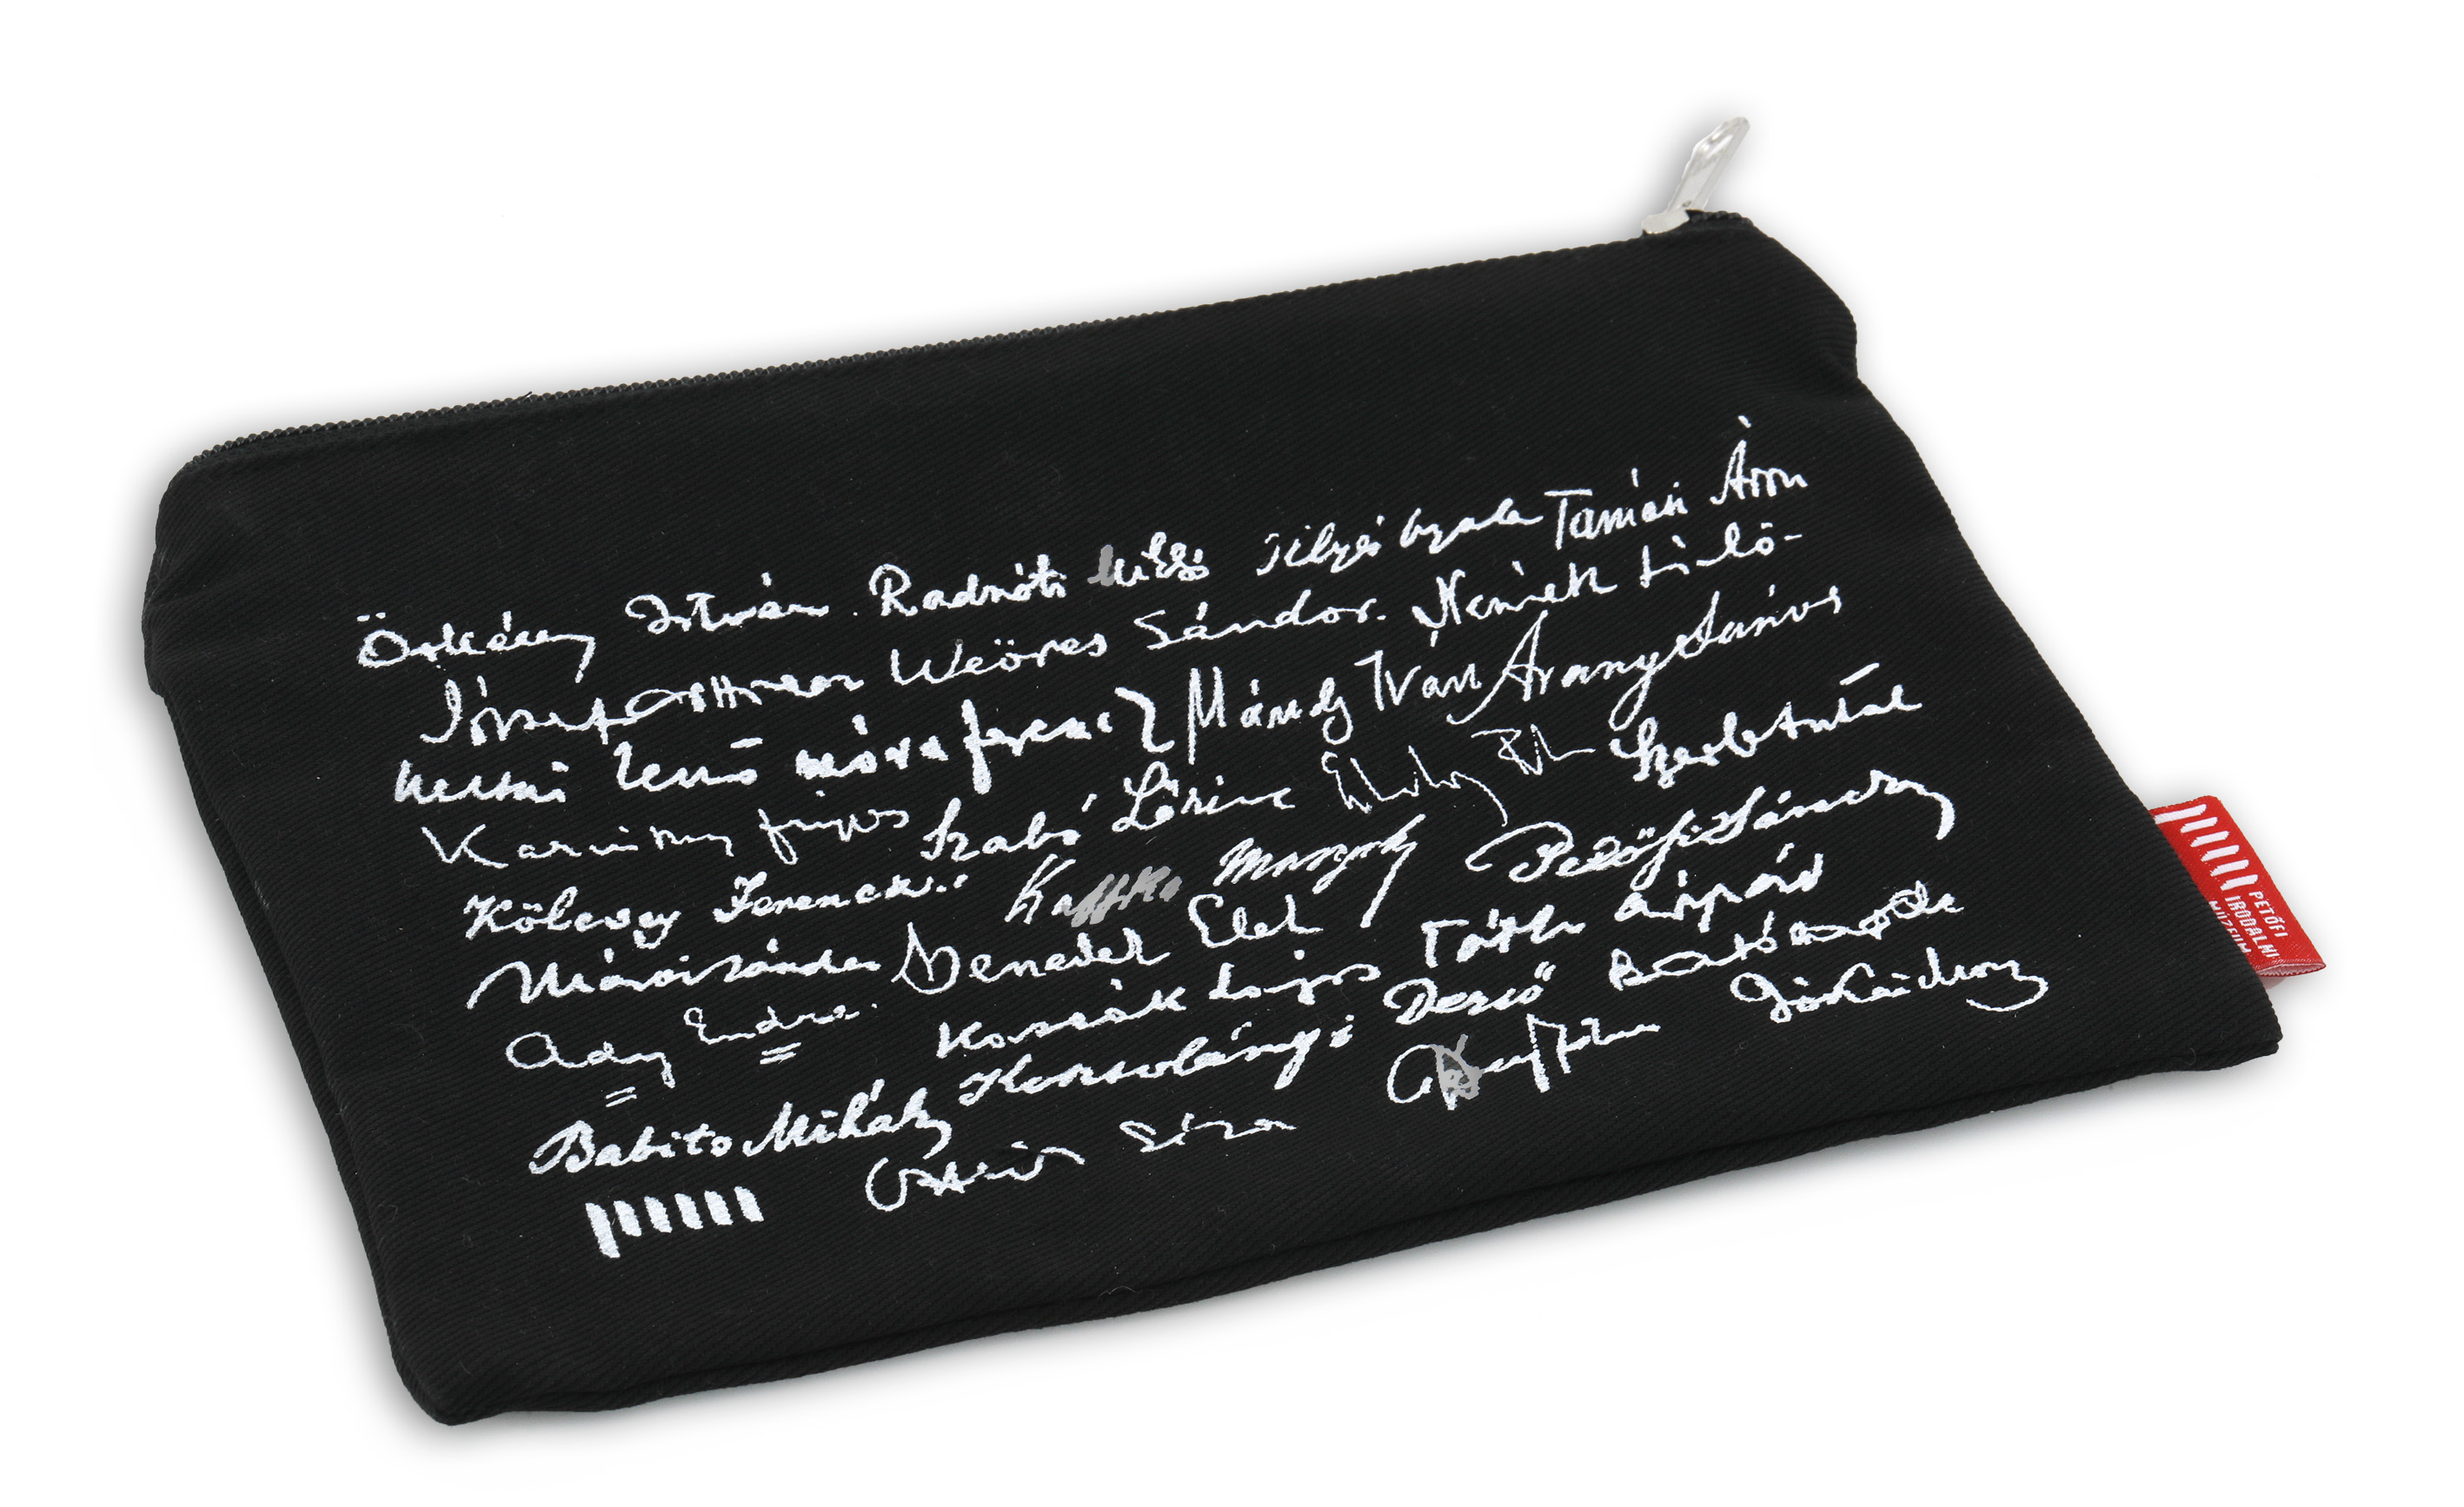 Örkény István Radnóti Miklós Illyés Gyula Tamási Áron
József Attila Weöres Sándor. Németh László
Heltai Jenő Móra Ferenc Mándy Iván Arany János
Karinthy Frigyes Szabó Lőrinc Szerb Antal
Kölcsey Ferenc Kaffka Margit Petőfi Sándor
Márai Sándor Benedek Elek Tóth Árpád
Ady Endre. Kassák Lajos
Babits Mihály Kosztolányi Dezső Jókai Mór
Géza
PETŐFI
IRODALMI
MÚZEUM